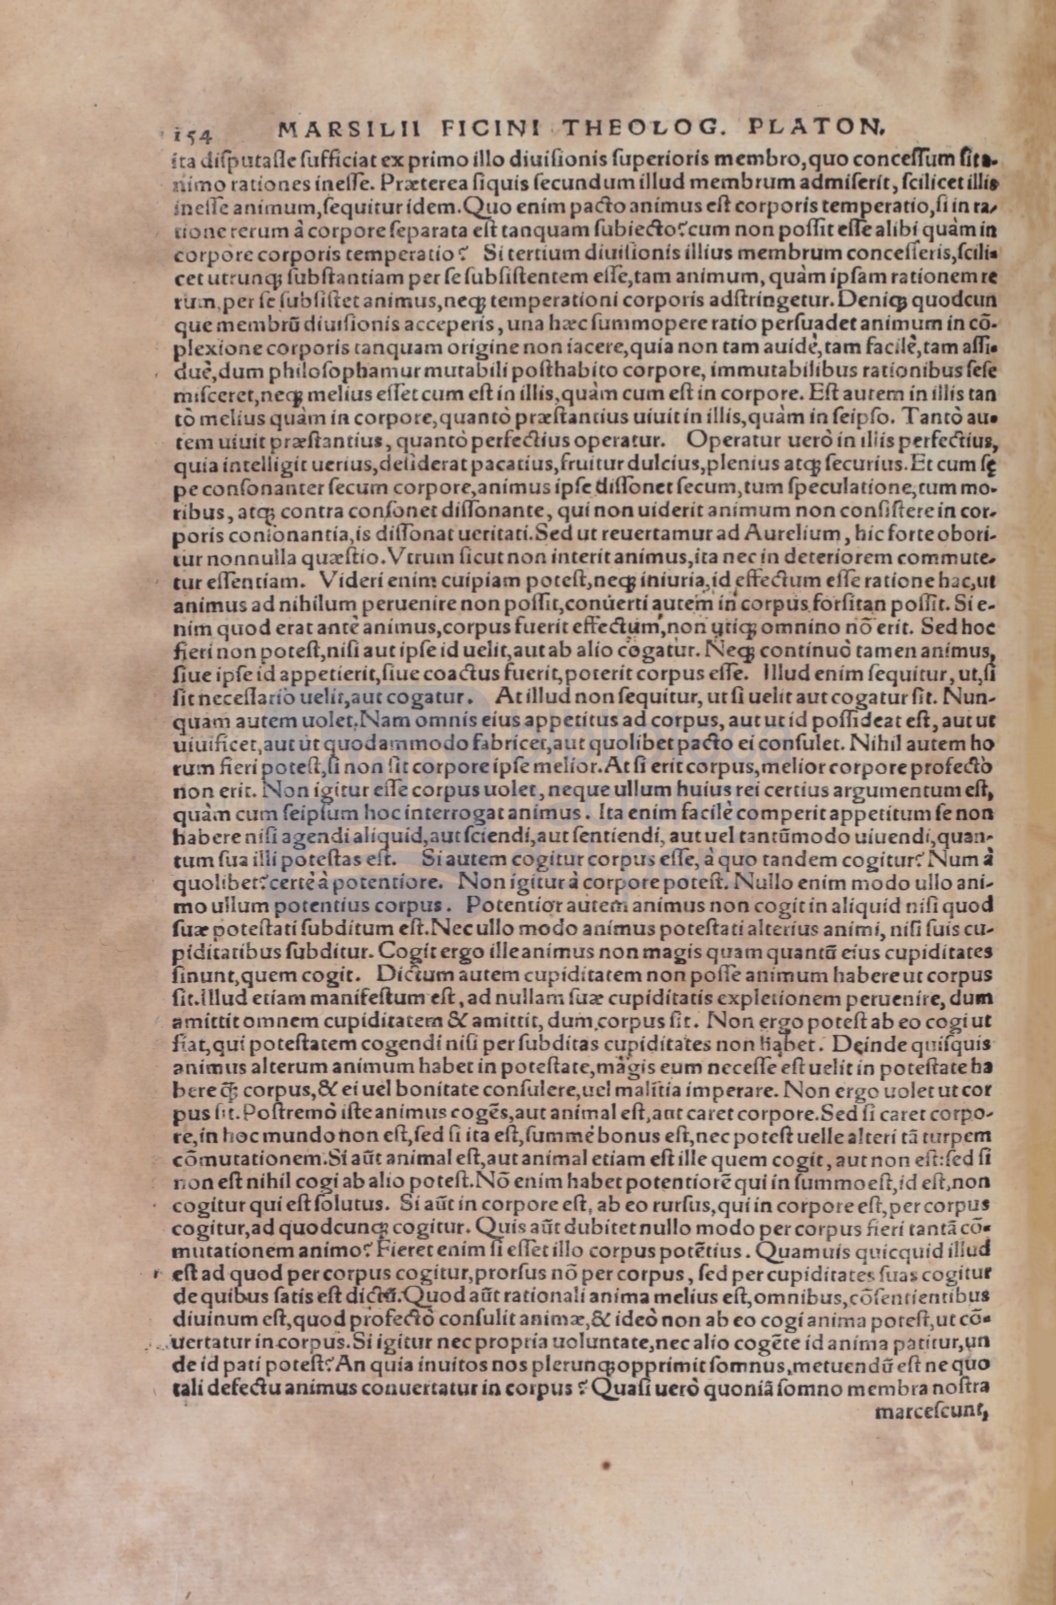 154 MARSILII FICINI THEOLOG. PLATON.
ita disputasse sufficiat ex primo illo diuisionis superioris membro, quo concessum sit a-
nimo rationes inesse. Præterea siquis secundum illud membrum admiserit, scilicet illis
inesse animum, sequitur idem. Quo enim pacto animus est corporis temperatio, si in ra-
tione rerum à corpore separata est tanquam subiecto? cum non possit esse alibi quàm in
corpore corporis temperatio? Si tertium diuisionis illius membrum concesseris, scili-
cet utrunq; substantiam per se subsistentem esse, tam animum, quàm ipsam rationem re
rum, per se subsistet animus, neq; temperationi corporis adstringetur. Deniq; quodcun
que membrũ diuisionis acceperis, una hæc summopere ratio persuadet animum in cõ-
plexione corporis tanquam origine non iacere, quia non tam auidè, tam facilè, tam assi-
duè, dum philosophamur mutabili posthabito corpore, immutabilibus rationibus sese
misceret, neq; melius esset cum est in illis, quàm cum est in corpore. Est autem in illis tan
tò melius quàm in corpore, quantò præstantius uiuit in illis, quàm in seipso. Tantò au-
tem uiuit præstantius, quantò perfectius operatur. Operatur uerò in illis perfectius,
quia intelligit uerius, desiderat pacatius, fruitur dulcius, plenius atq; securius. Et cum sę
pe consonanter secum corpore, animus ipse dissonet secum, tum speculatione, tum mo-
ribus, atq; contra consonet dissonante, qui non uiderit animum non consistere in cor-
poris consonantia, is dissonat ueritati. Sed ut reuertamur ad Aurelium, hic forte obori-
tur nonnulla quæstio. Vtrum sicut non interit animus, ita nec in deteriorem commute-
tur essentiam. Videri enim cuipiam potest, neq; iniuria, id effectum esse ratione hac, ut
animus ad nihilum peruenire non possit, conuerti autem in corpus forsitan possit. Si e-
nim quod erat antè animus, corpus fuerit effectum, non utiq; omnino nõ erit. Sed hoc
fieri non potest, nisi aut ipse id uelit, aut ab alio cogatur. Neq; continuò tamen animus,
siue ipse id appetierit, siue coactus fuerit, poterit corpus esse. Illud enim sequitur, ut, si
sit necessario uelit, aut cogatur. At illud non sequitur, ut si uelit aut cogatur sit. Nun-
quam autem uolet. Nam omnis eius appetitus ad corpus, aut ut id possideat est, aut ut
uiuificet, aut ut quodammodo fabricet, aut quolibet pacto ei consulet. Nihil autem ho
rum fieri potest, si non sit corpore ipse melior. At si erit corpus, melior corpore profectò
non erit. Non igitur esse corpus uolet, neque ullum huius rei certius argumentum est,
quàm cum seipsum hoc interrogat animus. Ita enim facilè comperit appetitum se non
habere nisi agendi aliquid, aut sciendi, aut sentiendi, aut uel tantũmodo uiuendi, quan-
tum sua illi potestas est. Si autem cogitur corpus esse, à quo tandem cogitur? Num à
quolibet? certè à potentiore. Non igitur à corpore potest. Nullo enim modo ullo ani-
mo ullum potentius corpus. Potentior autem animus non cogit in aliquid nisi quod
suæ potestati subditum est. Nec ullo modo animus potestati alterius animi, nisi suis cu-
piditatibus subditur. Cogit ergo ille animus non magis quam quantũ eius cupiditates
sinunt, quem cogit. Dictum autem cupiditatem non posse animum habere ut corpus
sit. Illud etiam manifestum est, ad nullam suæ cupiditatis expletionem peruenire, dum
amittit omnem cupiditatem & amittit, dum corpus sit. Non ergo potest ab eo cogi ut
fiat, qui potestatem cogendi nisi per subditas cupiditates non habet. Deinde quisquis
animus alterum animum habet in potestate, magis eum necesse est uelit in potestate ha
bere q̃ corpus, & ei uel bonitate consulere, uel malitia imperare. Non ergo uolet ut cor
pus sit. Postremò iste animus cogẽs, aut animal est, aut caret corpore. Sed si caret corpo-
re, in hoc mundo non est, sed si ita est, summè bonus est, nec potest uelle alteri tã turpem
cõmutationem. Si aũt animal est, aut animal etiam est ille quem cogit, aut non est: sed si
non est nihil cogi ab alio potest. Nõ enim habet potentiorẽ qui in summo est, id est, non
cogitur qui est solutus. Si aũt in corpore est, ab eo rursus, qui in corpore est, per corpus
cogitur, ad quodcunq; cogitur. Quis aũt dubitet nullo modo per corpus fieri tantã cõ-
mutationem animo? Fieret enim si esset illo corpus potẽtius. Quamuis quicquid illud
est ad quod per corpus cogitur, prorsus nõ per corpus, sed per cupiditates suas cogitur
de quibus satis est dictũ. Quod aũt rationali anima melius est, omnibus, cõsentientibus
diuinum est, quod profectò consulit animæ, & ideò non ab eo cogi anima potest, ut cõ-
uertatur in corpus. Si igitur nec propria uoluntate, nec alio cogẽte id anima patitur, un
de id pati potest? An quia inuitos nos plerunq; opprimit somnus, metuendũ est ne quo
tali defectu animus conuertatur in corpus? Quasi uerò quoniã somno membra nostra
marcescunt,